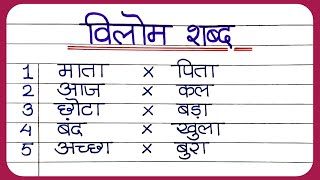 विलोम शब्द
1 माता × पिता
2 आज × कल
3 छोटा × बड़ा
4 बंद × खुला
5 अच्छा × बुरा